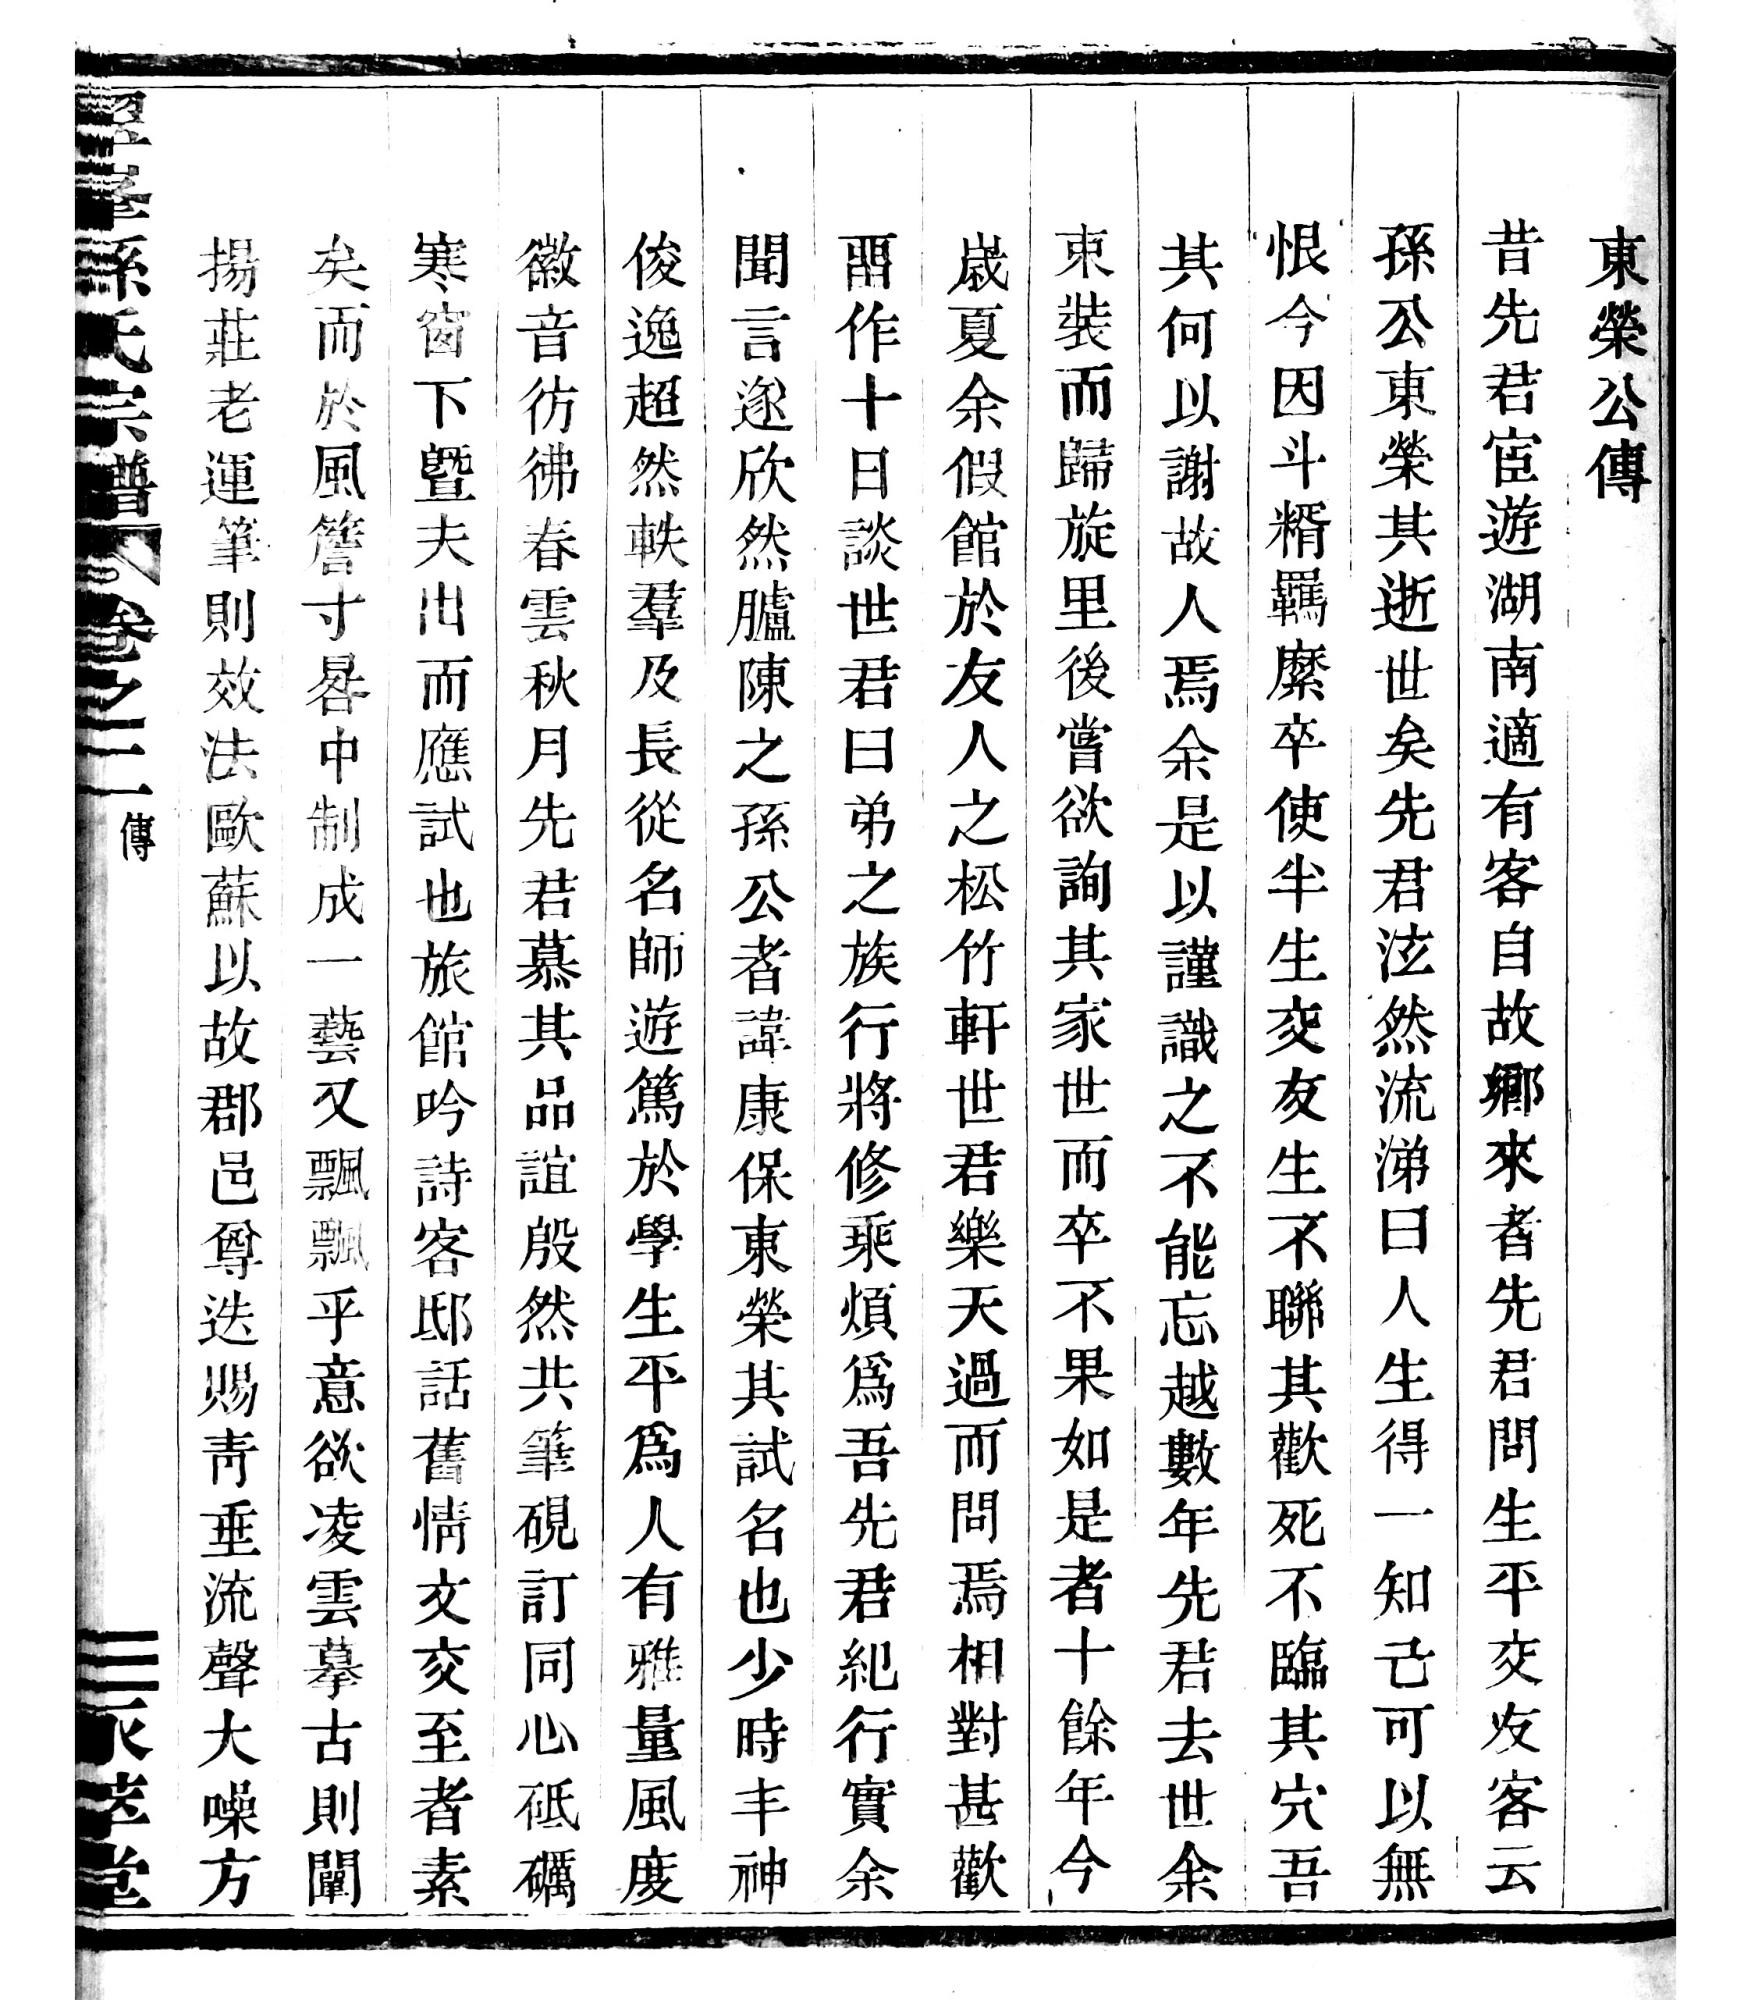 東榮公傳
昔先君宦遊湖南適有客自故鄉來者先君問生平交友客云
孫公東榮其逝世矣先君泫然流涕曰人生得一知己可以無
恨今因斗糈羈縻卒使半生交友生不聯其歡死不臨其穴吾
其何以謝故人焉余是以謹識之不能忘越數年先君去世余
束裝而歸旋里後嘗欲詢其家世而卒不果如是者十餘年今
歲夏余假館於友人之松竹軒世君樂天過而問焉相對甚歡
畱作十日談世君曰弟之族行將修乘煩爲吾先君紀行實余
聞言遂欣然臚陳之孫公者諱康保東榮其試名也少時丰神
俊逸超然軼羣及長從名師遊篤於學生平爲人有雅量風度
徽音彷彿春雲秋月先君慕其品誼殷然共筆硯訂同心砥礪
寒窗下曁夫出而應試也旅館吟詩客邸話舊情文交至者素
矣而於風簷寸晷中制成一藝又飄飄乎意欲凌雲摹古則闡
揚莊老運筆則效法歐蘇以故郡邑尊迭賜靑垂流聲大噪方
孫氏宗譜 卷之二 傳 三 萃堂